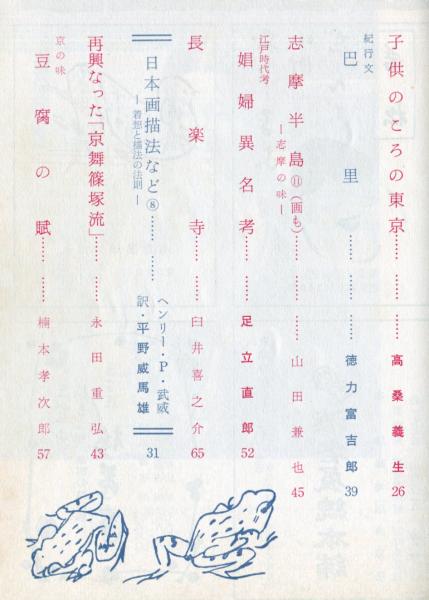 子供のころの東京………………高桑義生 26
紀行文
巴里………………徳力富吉郎 39
志摩半島⑪(画も)…………山田兼也 45
―志摩の味―
江戸時代考
娼婦異名考…………足立直郎 52
長楽寺…………臼井喜之介 65
日本画描法など⑧…………ヘンリー・P・武威
訳・平野威馬雄 31
―着想と描法の法則―
再興なった「京舞篠塚流」…………永田重弘 43
京の味
豆腐の賦…………楠本孝次郎 57